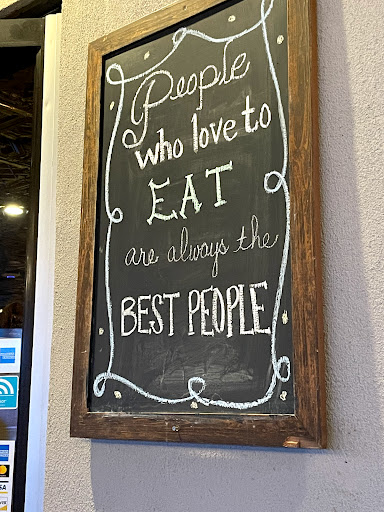 People
who love to
EAT
are always the
BEST PEOPLE
VISA